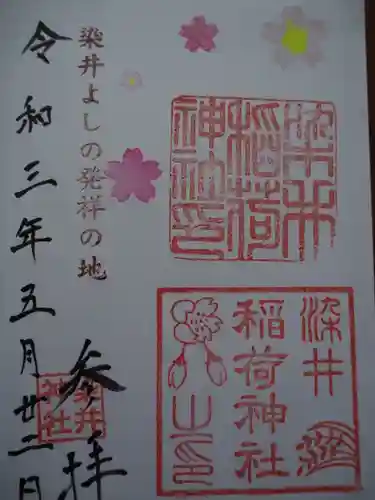 染井稲荷神社印
染井稲荷神社之印
染井よしの発祥の地
参拝
染井神社
令和三年五月廿二日